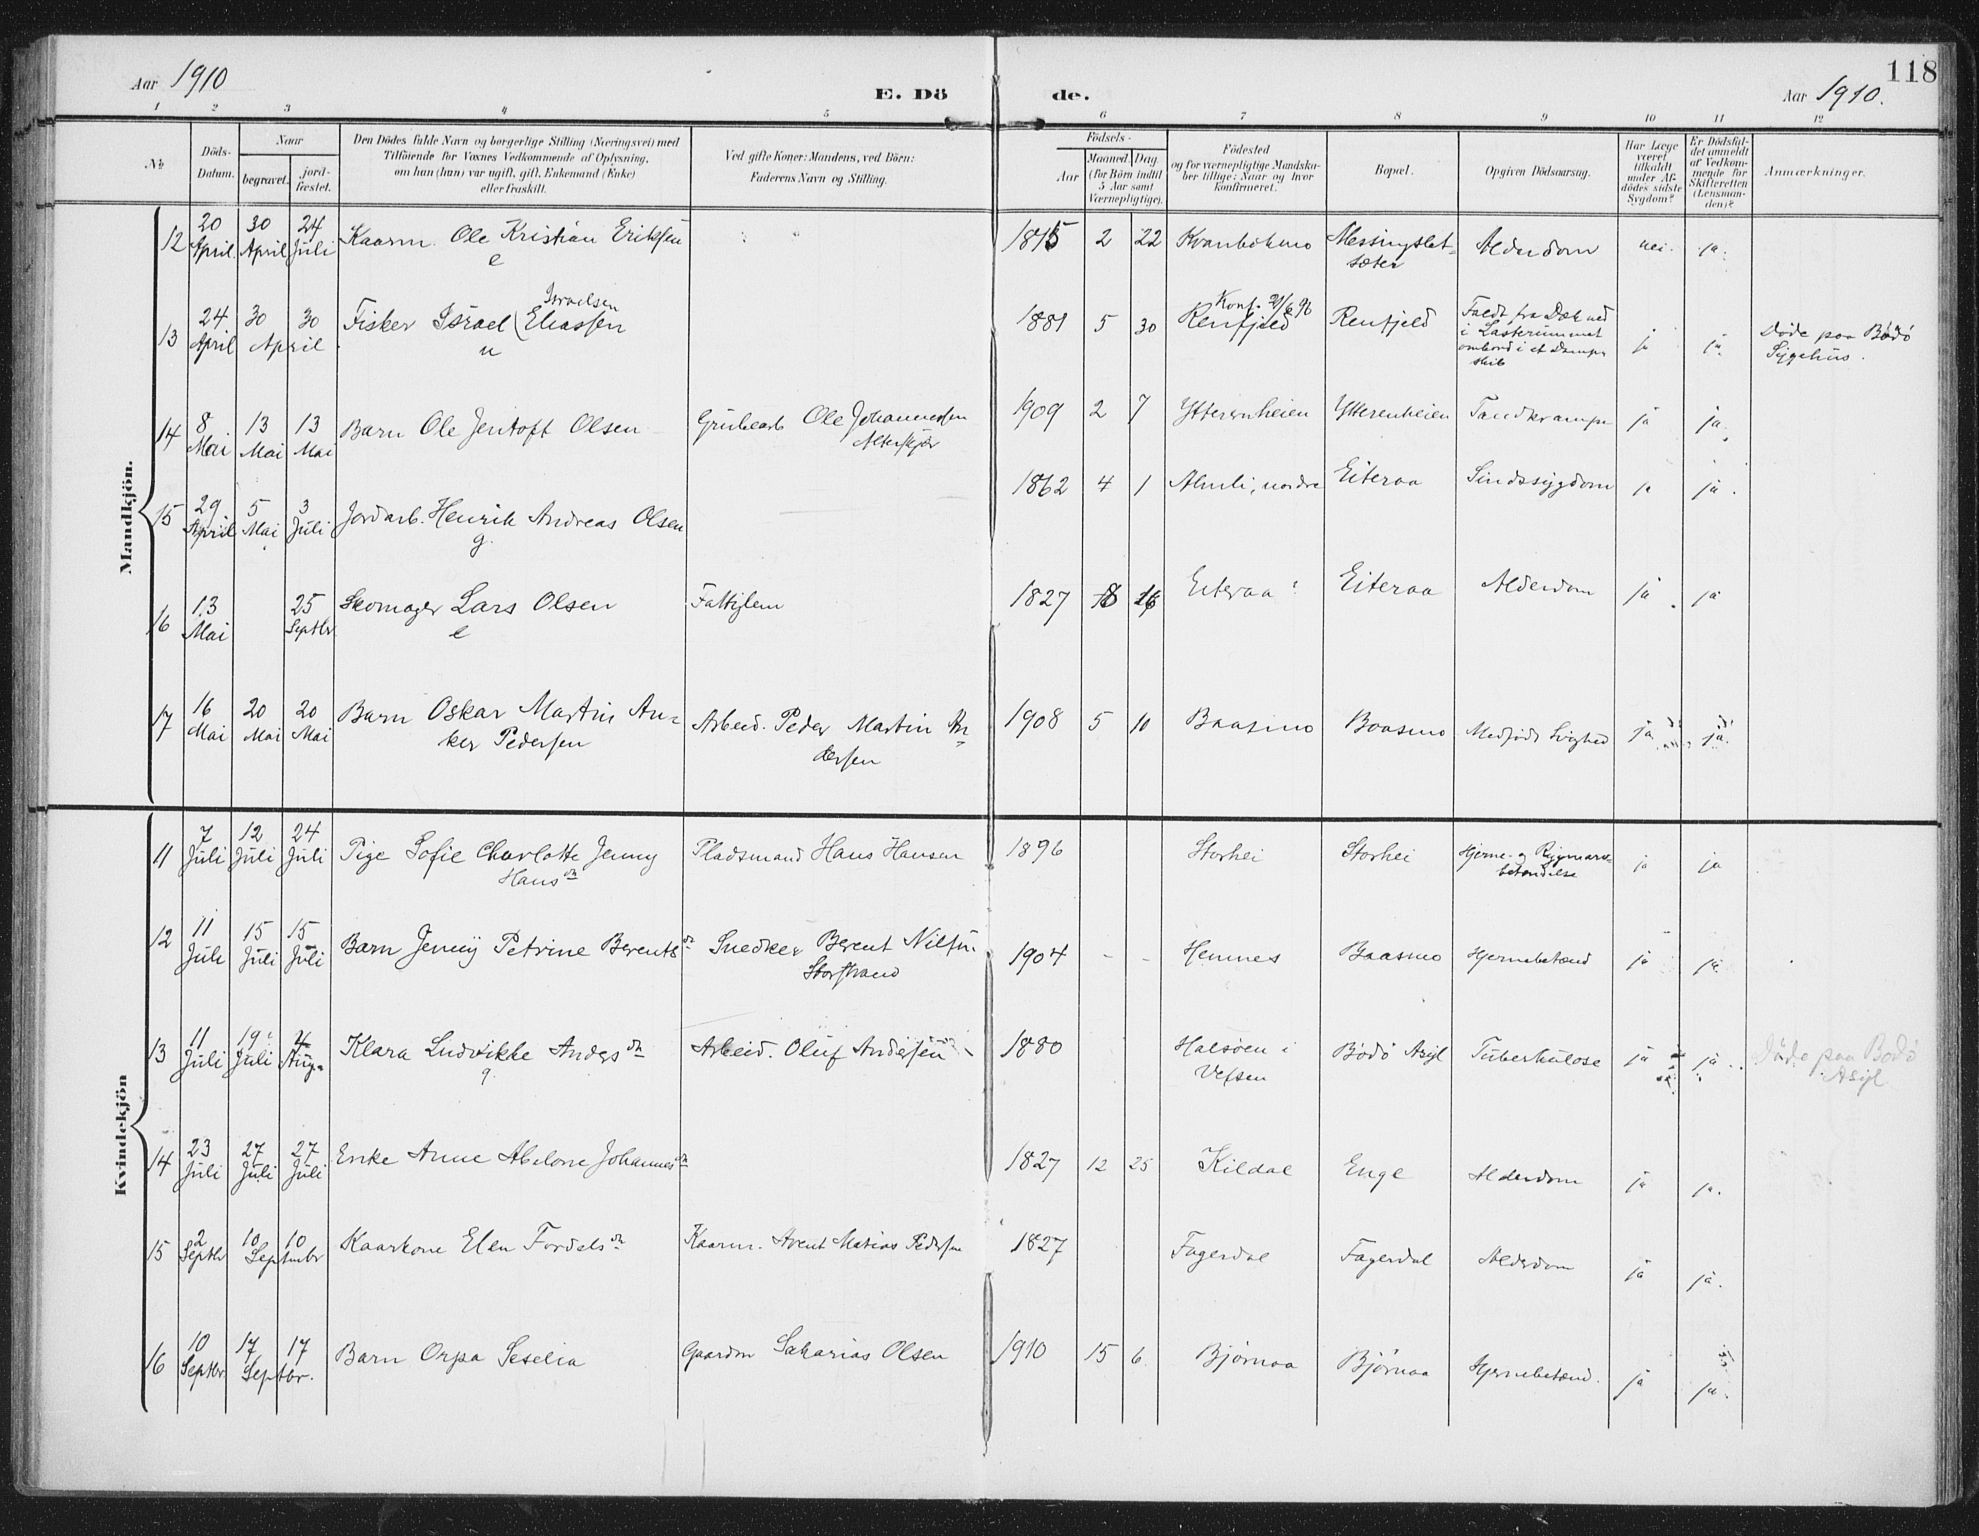 Aar 1910
E. Dö
de.
Aar 1910.
118
1 2 3 4 5 6 7 8 9 10 11 12
No
Döds-Datum.
Naar
begravet.
jord-fæstet.
Den Dödes fulde Navn og borgerlige Stilling (Næringsvei) med
Tilföiende for Voxnes Vedkommende af Oplysning,
om han (hun) var ugift, gift, Enkemand (Enke)
eller fraskilt.
Ved gifte Koner: Mandens, ved Börn:
Faderens Navn og Stilling.
Födsels-
Aar
Maaned. Dag.
(for Börn indtil
5 Aar samt
Værnepligtige).
Födested
og for værnepligtige Mandska-
ber tillige: Naar og hvor
konfirmeret.
Bopæl.
Opgiven Dödsaarsag.
Har Læge
været
tilkaldt
under Af-
dödes sidste
Sygdom?
Er Dödsfal-
det anmeldt
af Vedkom-
mende for
Skifteretten
(Lensman-
den)?
Anmærkninger.
Mandkjön.
12 20 April 30 April 24 Juli Kaarm. Ole Kristian Eriksen e 1815 2 22 Kvanbækmo Messingslet-sæter Alderdom nei. ja.
13 24 April 30 April 30 Fisker Israel (Israelsen Eliassen u 1881 5 30 Konf. Renfjeld Renfjeld Faldt fra Dæk ned
i Lasterummet
ombord i et Damp-
skib ja ja. Døde paa Bodö
Sygehus.
14 8 Mai 13 Mai 13 Mai Barn Ole Jentoft Olsen Grubearb Ole Johannessen
Alterskjær 1909 2 7 Ytterenheien Ytterenheien Tandkrampe ja ja.
15 29 April 5 Mai 3 Juli Jordarb. Henrik Andreas Olsen g. 1862 4 1 Almli, nordre Eiteraa Sindssygdom ja ja.
16 13 Mai 25 Septbr Skomager Lars Olsen e Fattiglem 1827 Eiteraa Eiteraa Alderdom ja. ja
17 16 Mai 20 Mai 20 Mai Barn Oskar Martin An-
ker Pedersen Arbeid. Peder Martin An-
dersen 1908 5 10 Baasmo Baasmo Medfødt Svaghed ja ja.
Kvindekjön
11 7 Juli 12 Juli 24 Juli Pige Sofie Charlotte Jenny
Hansdr Pladsmand Hans Hansen 1896 Storhei Storhei Hjerne- og Rygmarvs-
betændelse ja ja
12 11 Juli 15 Juli 15 Juli Barn Jenny Petrine Berentsdr Snedker Berent Nilsen
Storstrand 1904 - - Hemnes Baasmo Hjernebetænd ja ja.
13 11 Juli 19 Juli 4 Aug. Klara Ludvikke Andersdr g Arbeid. Oluf Andersen 1880 Halsøen i
Vefsen Bodö Asyl Tuberkulose ja ja. Døde paa Bodö
Asyl
14 23 Juli 27 Juli 27 Juli Enke Anne Abelone Johannesdr 1827 12 25 Kildal Enge Alderdom ja ja.
15 2 Septbr 10 Septembr 10 Kaarkone Elen Fordelsdr Kaarm. Arent Matias Pedersen 1827 Fagerdal Fagerdal Alderdom ja ja.
16 10 Septbr 17 Septbr. 17 Barn Orpa Seselia Gaardm Sakarias Olsen 1910 15 6. Bjørnaa Bjørnaa Hjernebetænd. ja ja.